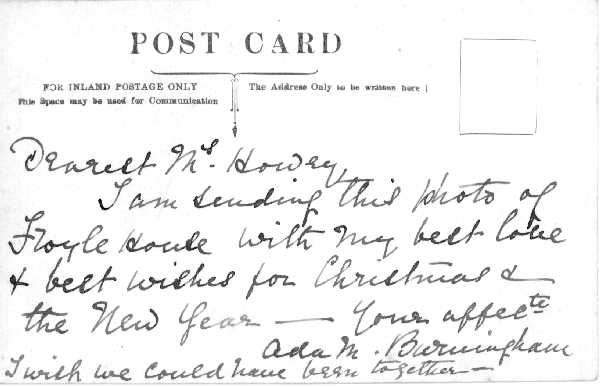 POST CARD
FOR INLAND POSTAGE ONLY
This Space may be used for Communication
The Address Only to be written here
Dearest Mrs. Howey,
I am sending this photo of
Froyle House with my best love
& best wishes for Christmas &
the New Year — Your affecte
Ada M. Burningham
I wish we could have been together —